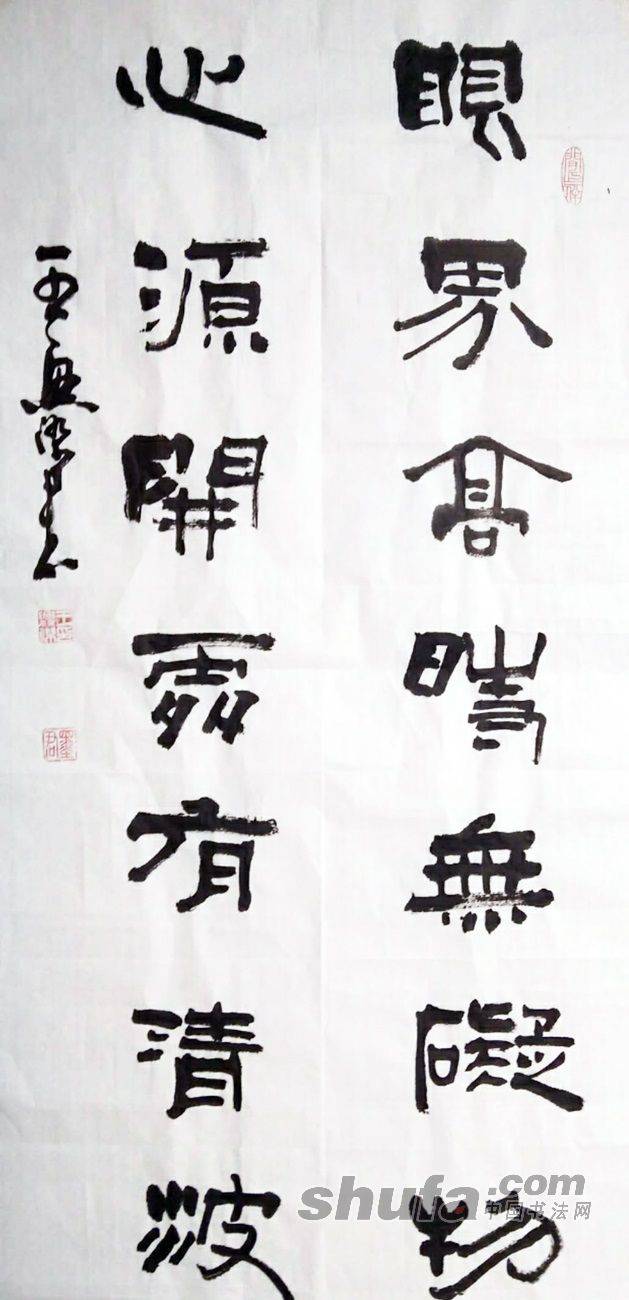 眼界高時無礙物
心源開處有清波
shufa.com
中国书法网